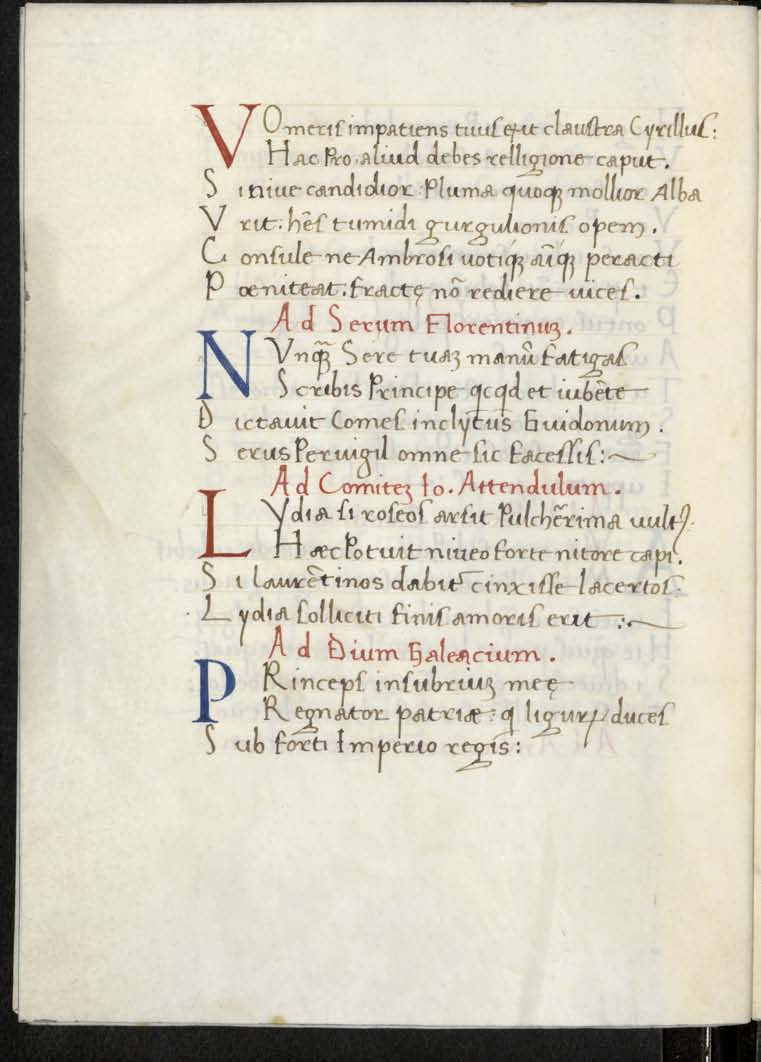 VOmeris impatiens tuus exit claustra Cyrillus:
Hac Pro aliud debes relligione caput.
Si niue candidior Pluma quoqꝫ mollior Alba
Vrit: hēs tumidi gurgulionis opem.
Consule ne Ambrosi uotiqꝫ aīqꝫ peracti
Pœniteat. fractę nō rediere uices.
Ad Serum Florentinuꝫ.
NVnqꝫ̄ Sere tuaꝫ manū fatigas
Scribis Principe qcqd et iubēte
Dictauit Comes inclytus Guidonum.
Serus Peruigil omne sic facessis:~
Ad Comiteꝫ Io. Attendulum.
LYdia si roseos arsit Pulchērima uult9.
Hæc Potuit niueo forte nitore capi.
Si laurētinos dabit᷑ cinxisse lacertos.
Lydia solliciti finis amoris erit :~
Ad Dium Galeacium.
PRinceps insubriuꝫ meę
Regnator patriæ: q ligurꝝ duces
Sub forti Imperio regis: